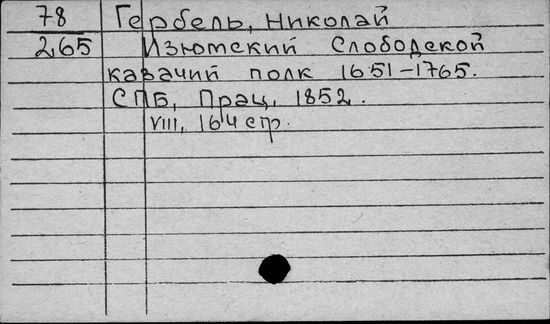 78 Гербель, Николай
265 Изютский Слободской
казачий полк 1651-1765.
СПБ, Прац, 1852.
VIII, 164 стр.